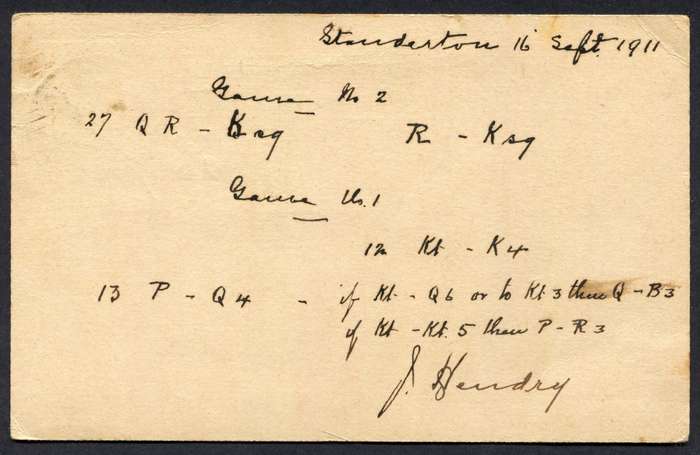 Standerton 16 Sept. 1911
Game No 2
27 Q R - K sq R - K sq
Game No. 1
12 Kt - K4
13 P - Q4 - if Kt - Q6 or to Kt 3 then Q - B3
if Kt - Kt. 5 then P - R3
J. Hendry